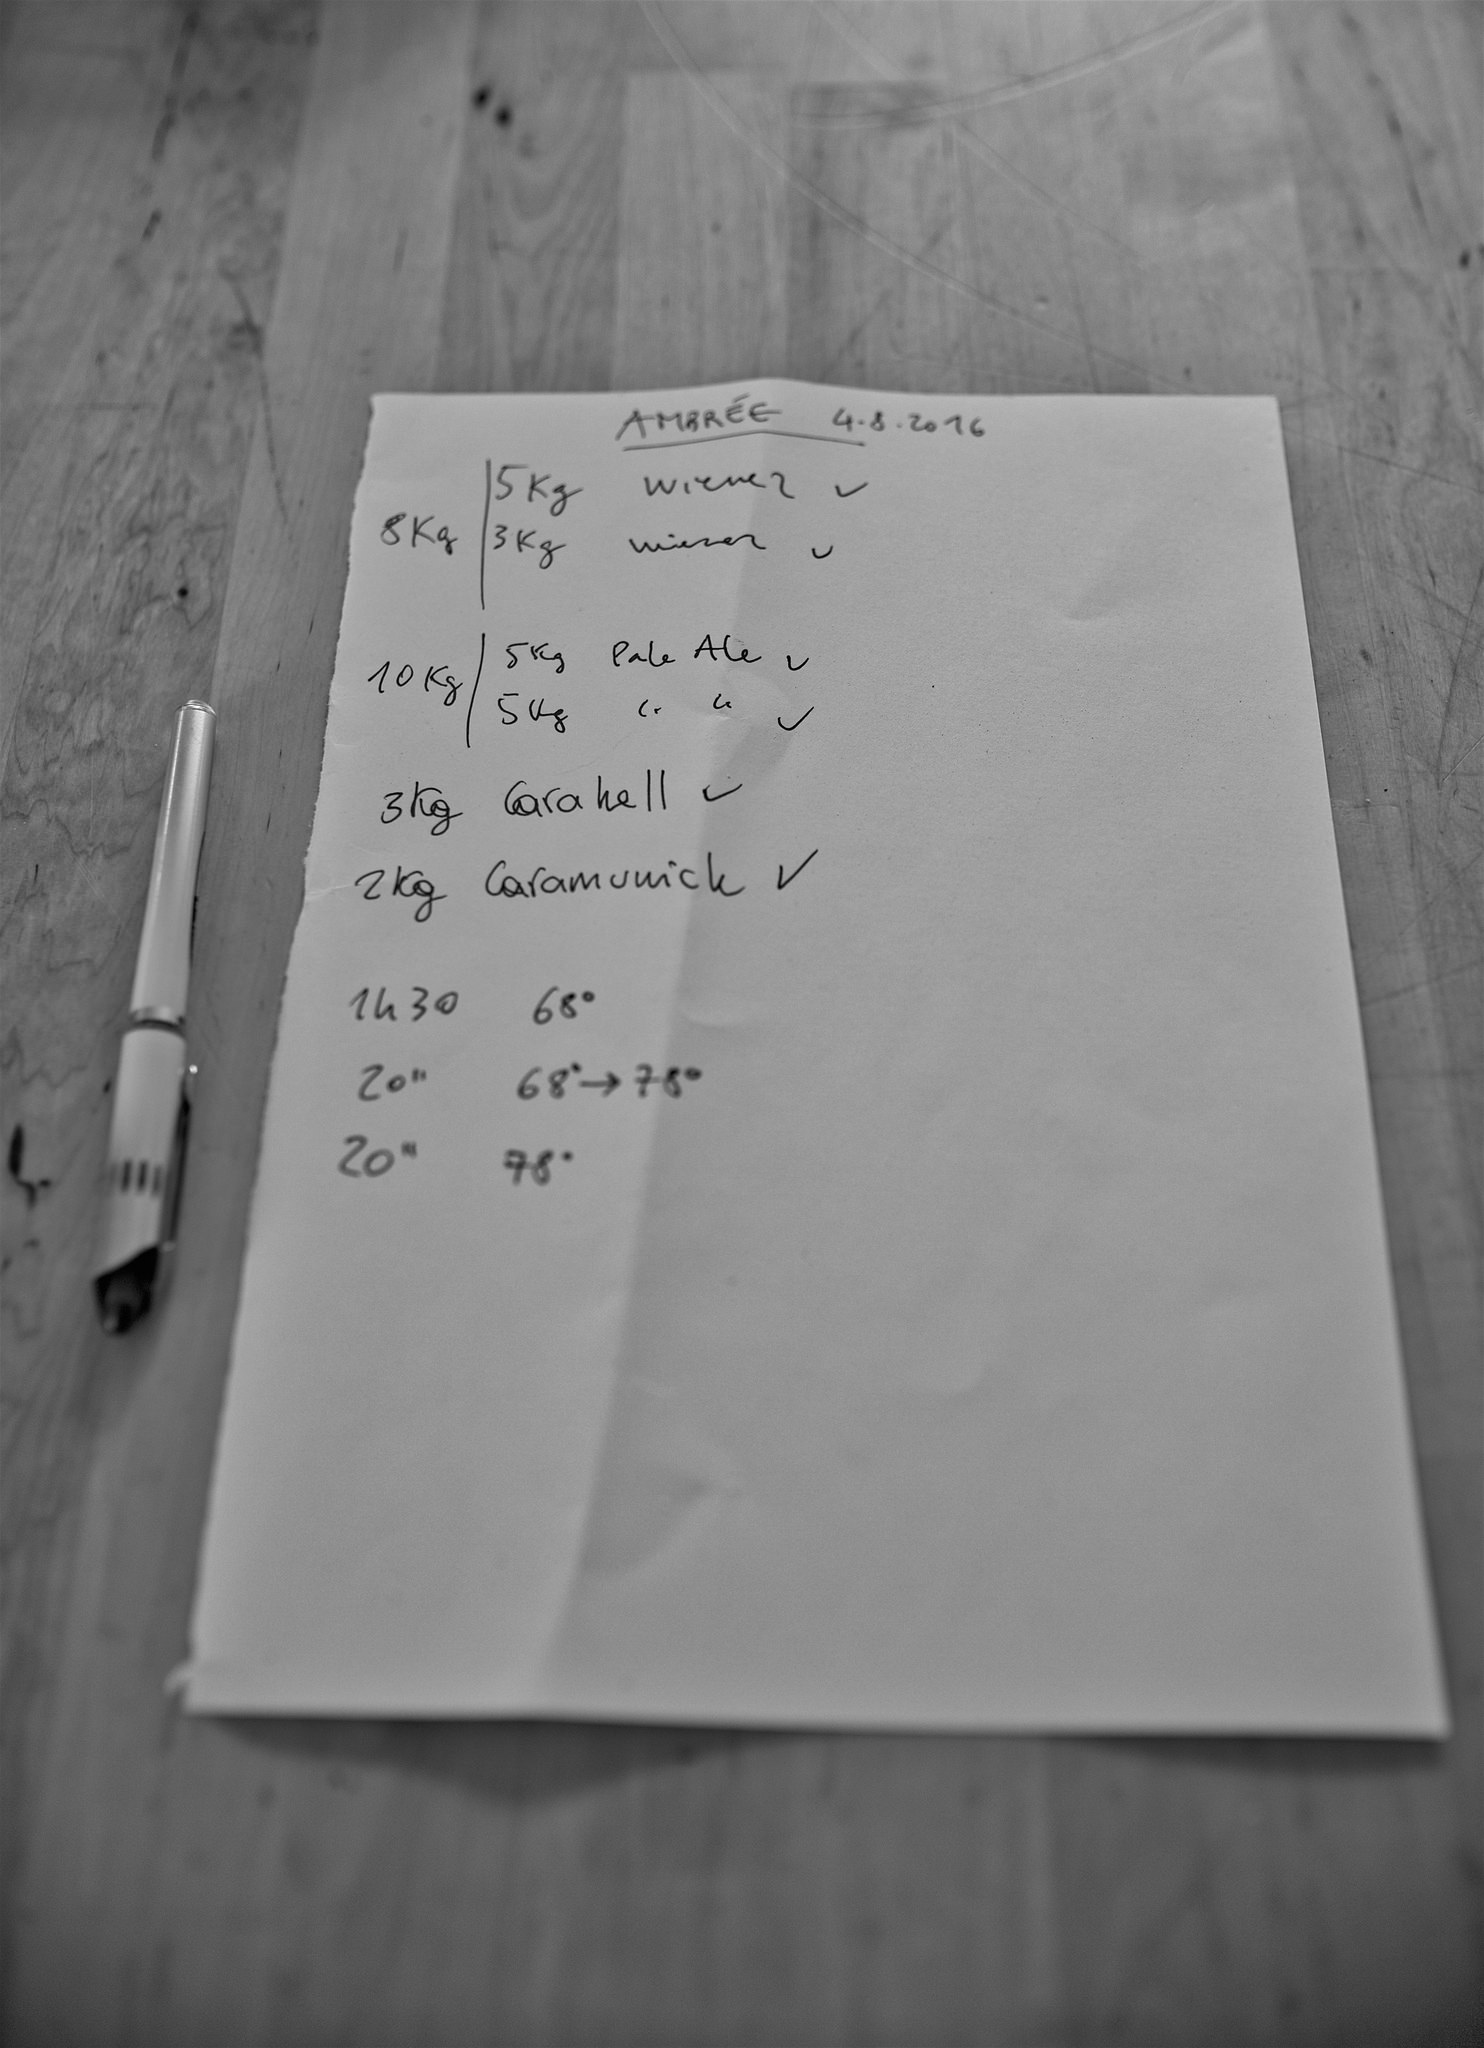 AMBRÉE 4.8.2016
5Kg wiener ✓
8Kg
3Kg wiener ✓
5Kg Pale Ale ✓
10Kg
5Kg " " ✓
3Kg Carahell ✓
2Kg Caramunich ✓
1h30 68°
20" 68°→78°
20" 78°